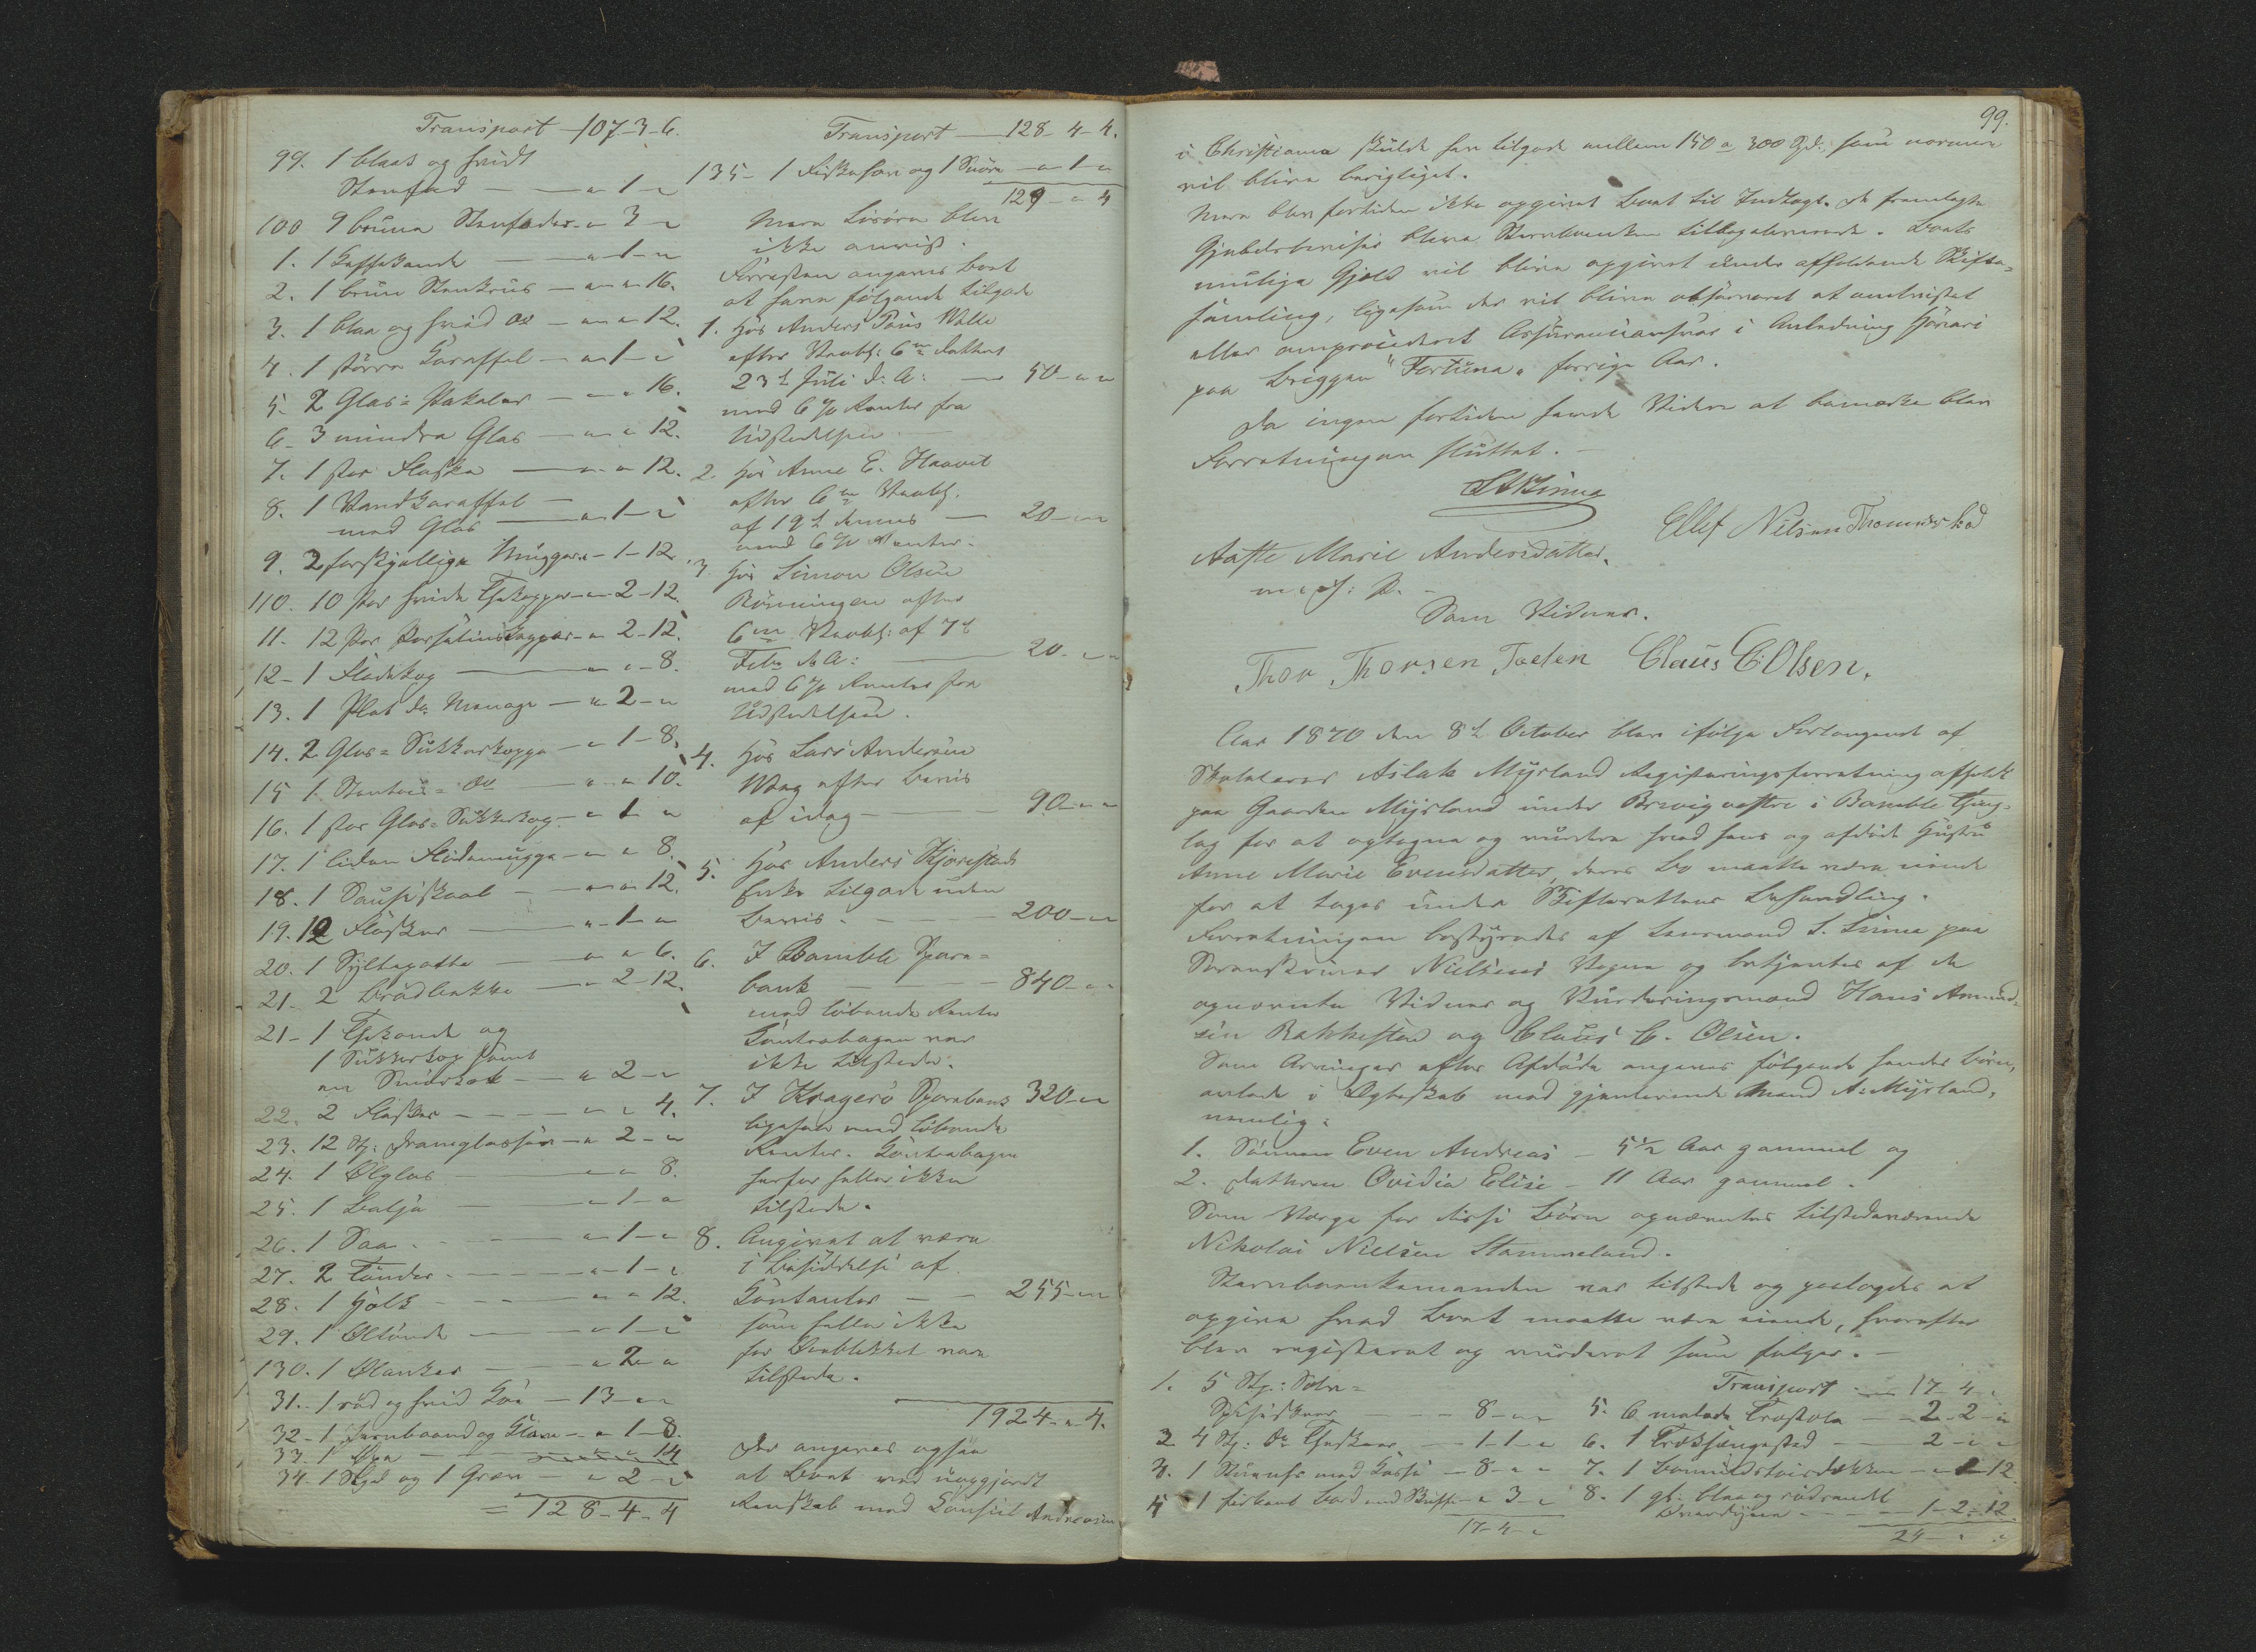 Transport - 107-3-6.
99. 1 blaat og hvidt
Steenfad - " - 1 - "
100 9 brune Steenfader - " 3 - "
1. 1 Kaffekande - " - 1 - "
2. 1 bruun Steenkrus - " - " 16.
3. 1 blaa og hvid do - " - " 12.
4. 1 større Karaffel - " - 1 - "
5. 2 Glas = Pokaler - " - " 16.
6. 3 mindre Glas - " - " 12.
7. 1 stor Flaske - " - " 12.
8. 1 Vandkaraffel
med Glas - " - 1 - "
9. 2 forskjellige Muggar - 1 - 12.
110. 10 Par hvide Thekopper - " 2 - 12.
11. 12 Par Porselinskopper - " 2 - 12.
12 - 1 Flødekop - " - " - 8.
13. 1 Plat de Menage - " 2 - "
14. 2 Glas = Sukkerkoppe - " 1 - 8.
15 1 Steentøis = do - " - " 10.
16. 1 stor Glas = Sukkerkop - " 1 "
17. 1 liden Flødemugge - " - " 8.
18. 1 Sauseskaal - " - " 12.
19. 12 Flasker - " - 1 - "
20. 1 Syltepotte - " - " 6.
21 - 2 Brødbakke - " - 2 - 12.
21 - 1 Thekande og
1 Sukkerkop samt
en Smørkop - " 2 - "
22. 2 Flasker - " - " 4.
23. 12 Stk: Dramglasser - " 2 - "
24. 1 Ølglas - " - " 8.
25. 1 Balje - " - 1 - "
26. 1 Saa - " - 1 - "
27. 2 Tønder - " - 1 - "
28. 1 Holk - " - " 12.
29. 1 Øltønde - " - 1 - "
130. 1 Ølanker - " 2 - "
31. 1 rød og hvid Ko - 13 - " "
32 - 1 Jernbaand og Klave - " 1 - 8.
33. 1 Øxe - " - " 14
34. 1 Spd og 1 Grev - " 2 - "
= 128 - 4 - 4
Transport - 128 - 4 - 4.
135 - 1 Fiskesæn og 1 Snøre - " - 1 - "
129 - " 4
Mere Løsøre blev
ikke anvist.
Forresten angaves Boet
at have følgende tilgode
1. Hos Anders Paus Valle
efter Vexel: 6m dateret
23d Juli d: A: - 50 - " "
med 6% Renter fra
Udstedelsen.
2. Hos Anne E. Haavet
efter 6m Vexel.
af 19d dennes - 20 - " "
med 6% Renter.
3. Hos Simon Olsen
Rønningen efter
6m Vexel: af 7d
Febr d. A: - 20 - " "
med 6% Renter fra
Udstedelsen.
4. Hos Lars Andersen
Wang efter Bevis
af idag - 90 - " "
5. Hos Anders Kjørestads
Enke tilgode uden
Bevis. - 200 - " "
6. I Bamble Spare=
bank - 840 - " "
med løbende Renter
Contrabogen var
ikke tilstede.
7. I Kragerø Sparebank 320 - " "
ligesaa med løbende
Renter. Contrabogen
herfor heller ikke
tilstede.
8. Angivet at være
i Besiddelse af
Contanter - 255 - " "
som heller ikke
for Øieblikket vare
tilstede.
1924 - " 4.
Der angaves ogsaa
at Boet ved uopgjort
Regnskab med Consul Andresen
99.
i Christiania skulde have tilgode mellem 150 a 300 Spd: som nærmere
vil blive berigtiget.
Mere blev fortiden ikke opgivet Boet til Indtægt. De fremlagte
Gjældsbeviser bleve Stervbøenken tilbageleverede. Boets
mulige Gjæld vil blive opgivet under afholdende Skifte=
samling, ligesom der vil blive observeret at
eller Assuranceansvar i Anledning Havari
paa Briggen "Fortuna" forrige Aar.
Da ingen fortiden havde Videre at bemærke blev
Forretningen sluttet.
S. Sinnes
Ellef Nilsen Thommesbød
Aaste Marie Andersdatter.
m. i. P. -
Som Vidner.
Thor Thorsen Toelen Claus C. Olsen.
Aar 1870 den 8d October blev ifølge Forlangende af
Skolelærer Aslak Myrland Registreringsforretning afholdt
paa Gaarden Myrland under Brevig vestre i Bamble Thing=
lag for at optegne og vurdere hvad hans og afdøde Hustru
Anne Marie Evensdatter, deres Bo maatte være eiende
for at tages under Skifterettens Behandling.
Forretningen bestyredes af Lensmand S. Sinnes paa
Sorenskriver Nielsens Vegne og betjentes af de
opnævnte Vidner og Vurderingsmænd Hans Amund=
sen Bakkestad og Claus C. Olsen.
Som Arvinger efter Afdøde angaves følgende hendes Børn,
avlede i Ægteskab med gjenlevende Mand A. Myrland,
nemlig:
1. Sønnen Even Andreas - 5½ Aar gammel og
2. Datteren Ovidia Elise - 11 Aar gammel.
Som Værge for disse Børn opnævntes tilstedeværende
Nikolai Nielsen Stammeland.
Stervboenkemanden var tilstede og paalagdes at
opgive hvad Boet maatte være eiende, hvorefter
blev registreret og vurderet som følger. -
1. 5 Stk: Sølv=
Spiseskeer - 8 - " "
2 4 Stk: do Theskeer - 1 - 1 - "
3. 1 Stueuhr med Kasse - 8 - " "
4 1 firkant Bord med Skuffe - " 3 - "
17 - 4 - "
Transport - 17 - 4 - "
5. 6 malede Træstole - 2 - 2 - "
6. 1 Træksængested - 2 - " "
7. 1 Bomuldstøisdækken - " 2 - 12.
8. 1 gl: blaa og rødrandet
Overdyne - 1 - 2 - 12.
24 - " "